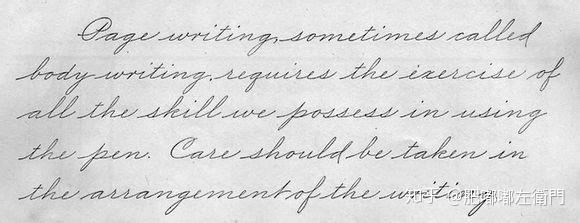 Page writing, sometimes called
body writing, requires the exercise of
all the skill we possess in using
the pen. Care should be taken in
the arrangement of the writing
知乎 @肥嘟嘟左衛門